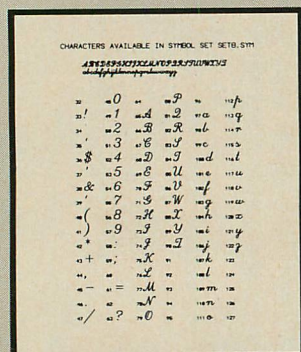 CHARACTERS AVAILABLE IN SYMBOL SET SETB.SYM
ABCDEFGHIJKLMNOPQRSTUVWXYZ
abcdefghijklmnopqrstuvwxyz
32 48 0 64 80 P 96 112 p
33 ! 49 1 65 A 81 Q 97 a 113 q
34 50 2 66 B 82 R 98 b 114 r
35 51 3 67 C 83 S 99 c 115 s
36 $ 52 4 68 D 84 T 100 d 116 t
37 53 5 69 E 85 U 101 e 117 u
38 & 54 6 70 F 86 V 102 f 118 v
39 ' 55 7 71 G 87 W 103 g 119 w
40 ( 56 8 72 H 88 X 104 h 120 x
41 ) 57 9 73 I 89 Y 105 i 121 y
42 * 58 : 74 J 90 Z 106 j 122 z
43 + 59 ; 75 K 91 107 k 123
44 , 60 76 L 92 108 l 124
45 - 61 = 77 M 93 109 m 125
46 . 62 78 N 94 110 n 126
47 / 63 ? 79 O 95 111 o 127